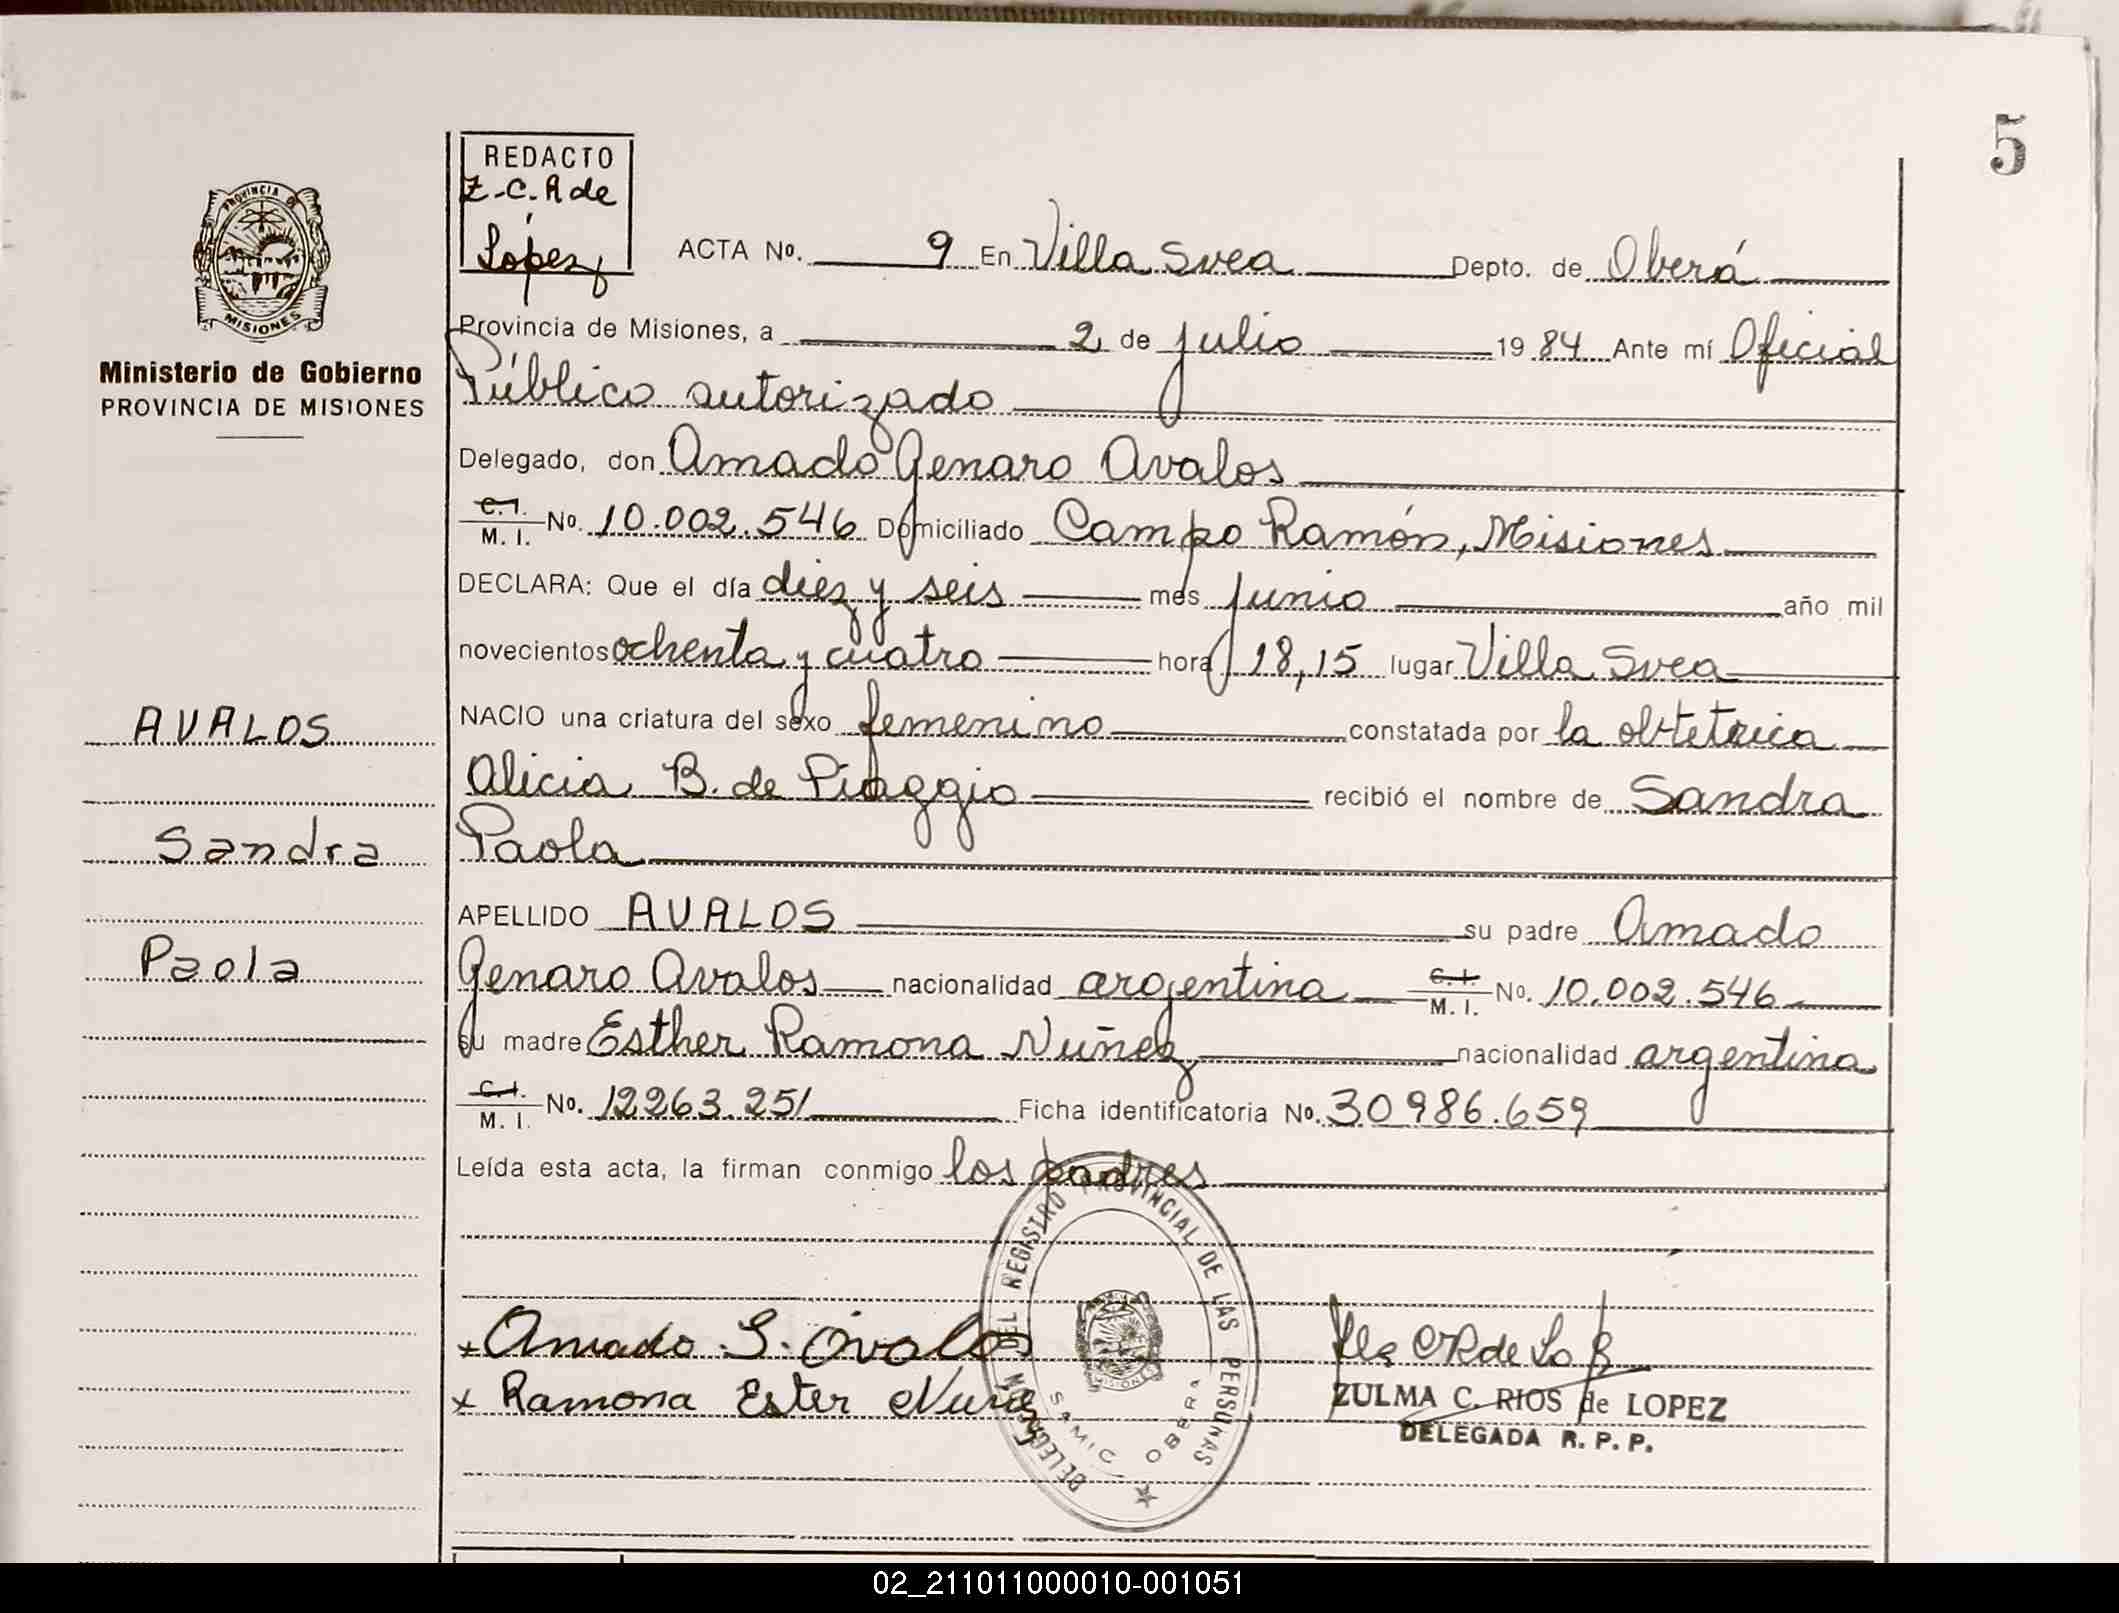 5
REDACTO
Z.C.R de
López
PROVINCIA DE
MISIONES
Ministerio de Gobierno
PROVINCIA DE MISIONES
ACTA Nº. 9 En Villa Svea Depto. de Oberá
Provincia de Misiones, a 2 de julio 1984 Ante mí Oficial
Público autorizado
Delegado, don Amado Genaro Avalos
C.I. M. I. No. 10.002.546 Domiciliado Campo Ramón, Misiones
DECLARA: Que el día diez y seis mes junio año mil
novecientos ochenta y cuatro hora 18,15 lugar Villa Svea
NACIO una criatura del sexo femenino constatada por la obtetrica
Alicia B. de Piaggio recibió el nombre de Sandra
Paola
APELLIDO AVALOS su padre Amado
Genaro Avalos nacionalidad argentina C.I. M. I. No. 10.002.546
su madre Esther Ramona Nuñez nacionalidad argentina
C.I. M. I. No. 12263.251 Ficha identificatoria No. 30986.659
Leída esta acta, la firman conmigo los padres
AVALOS
Sandra
Paola
x Amado G. Ovalos
x Ramona Ester Nuñez
DELEGACION DEL REGISTRO PROVINCIAL DE LAS PERSONAS
MISIONES
SAMIC OBERA
ZULMA C. RIOS de LOPEZ
DELEGADA R. P. P.
02_211011000010-001051